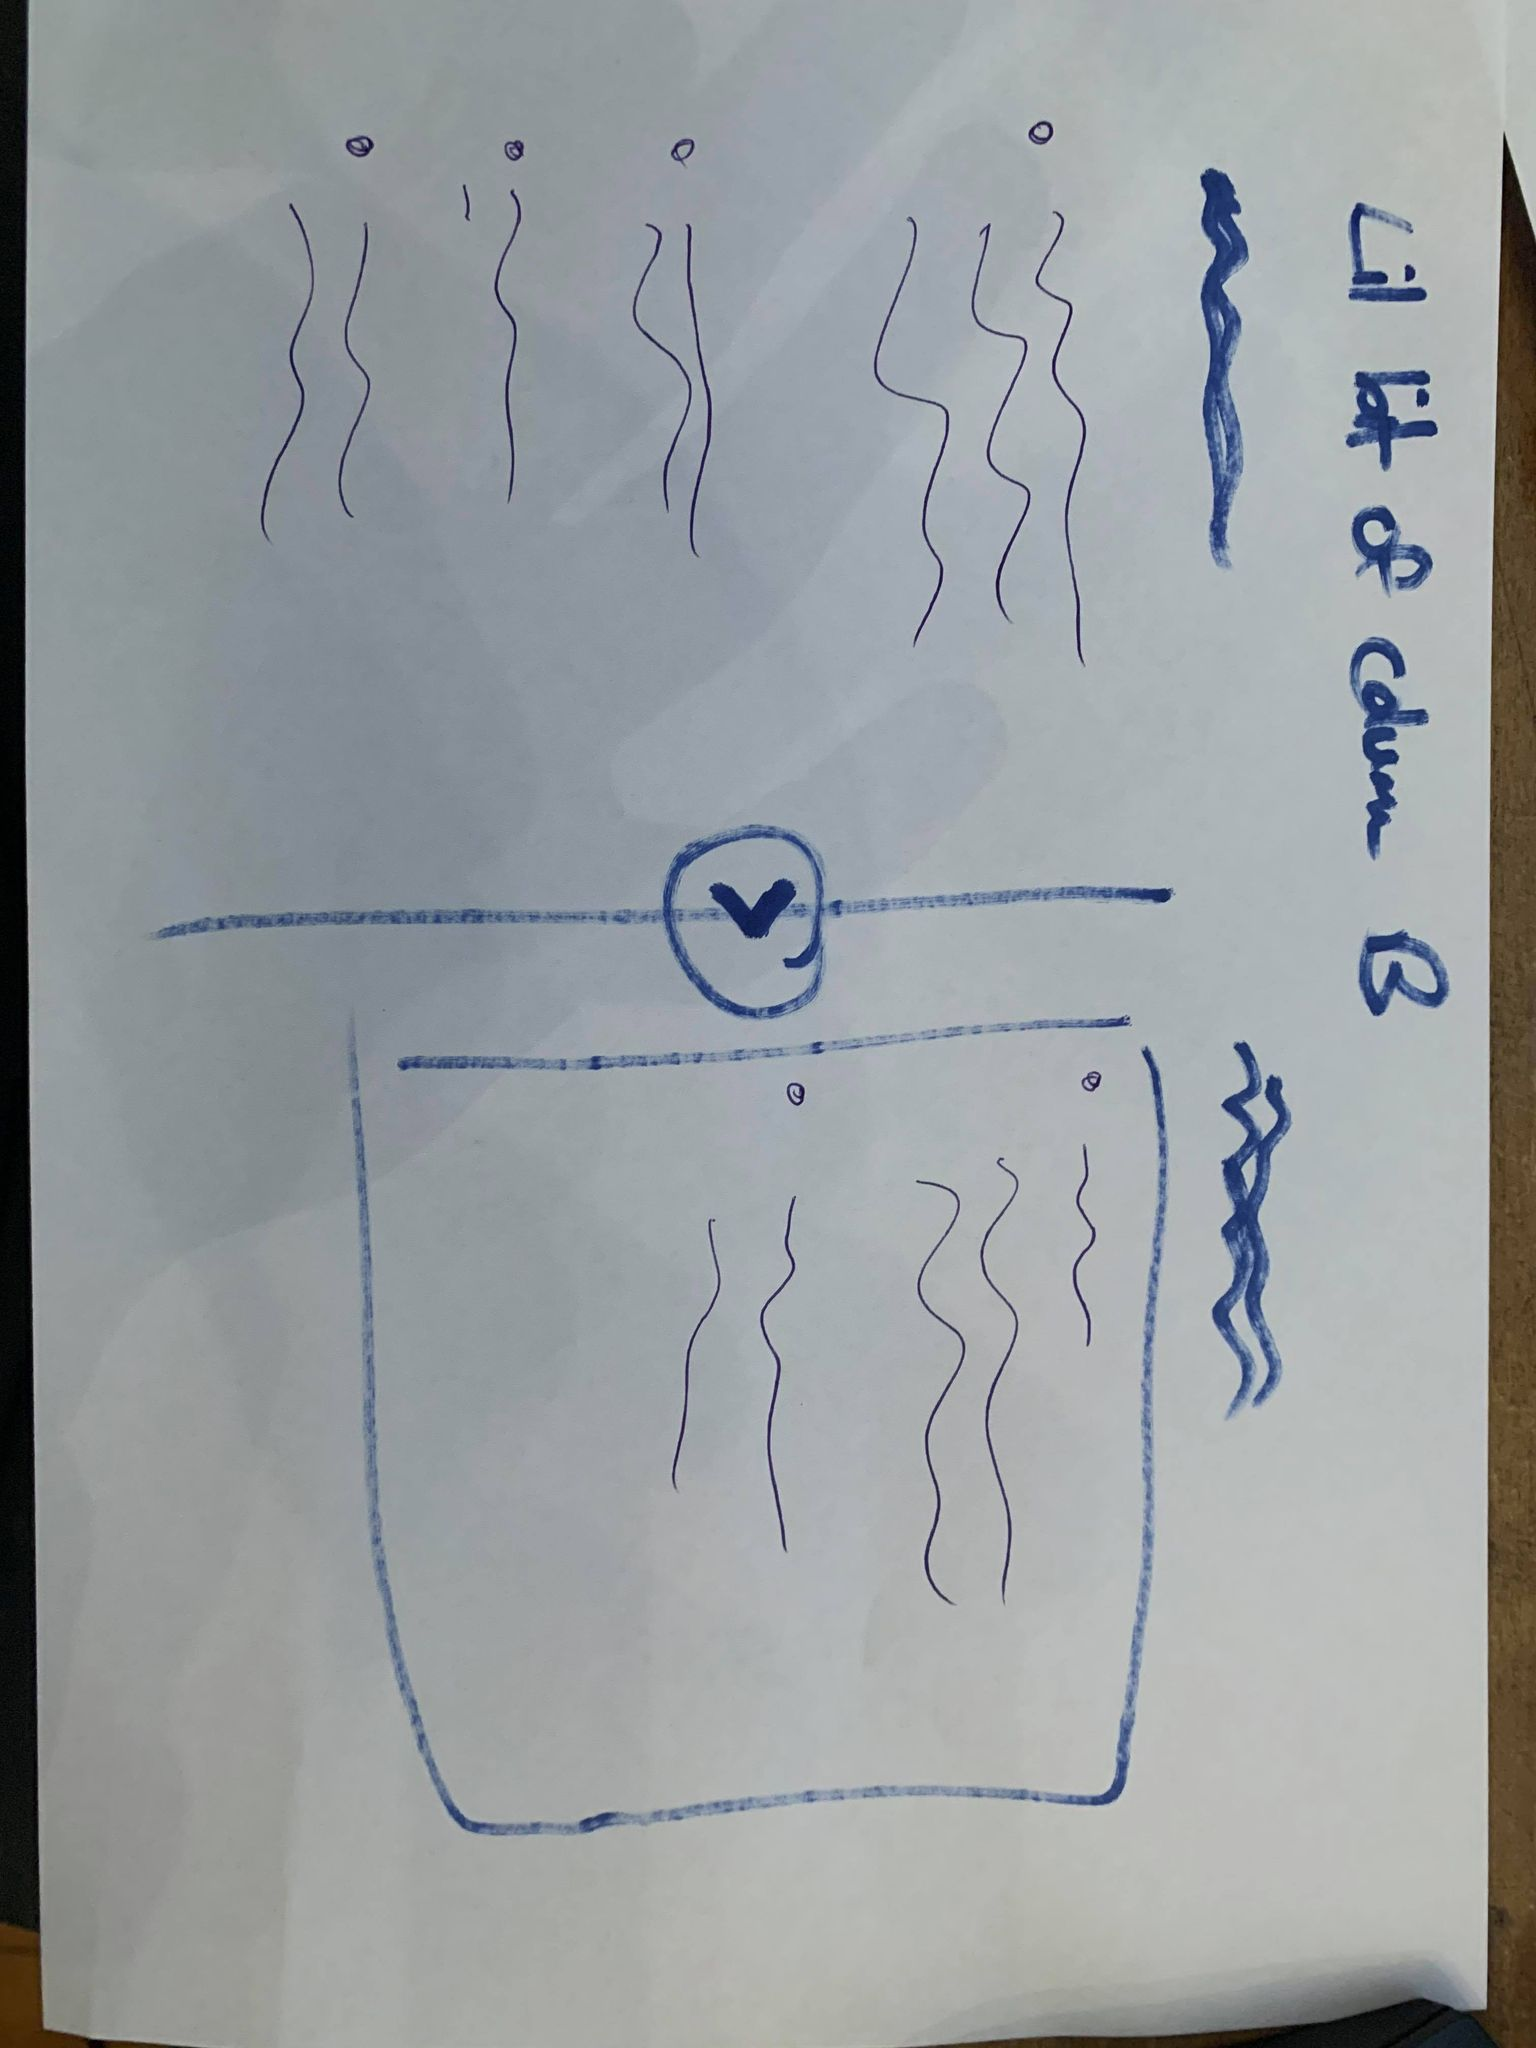 Lil bit of column B